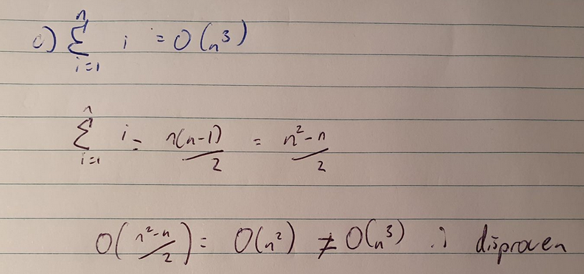 c) n Σ i=1 i = O(n³)
n Σ i=1 i = n(n-1)/2 = n²-n/2
O(n²-n/2) = O(n²) ≠ O(n³) ∴ disproven